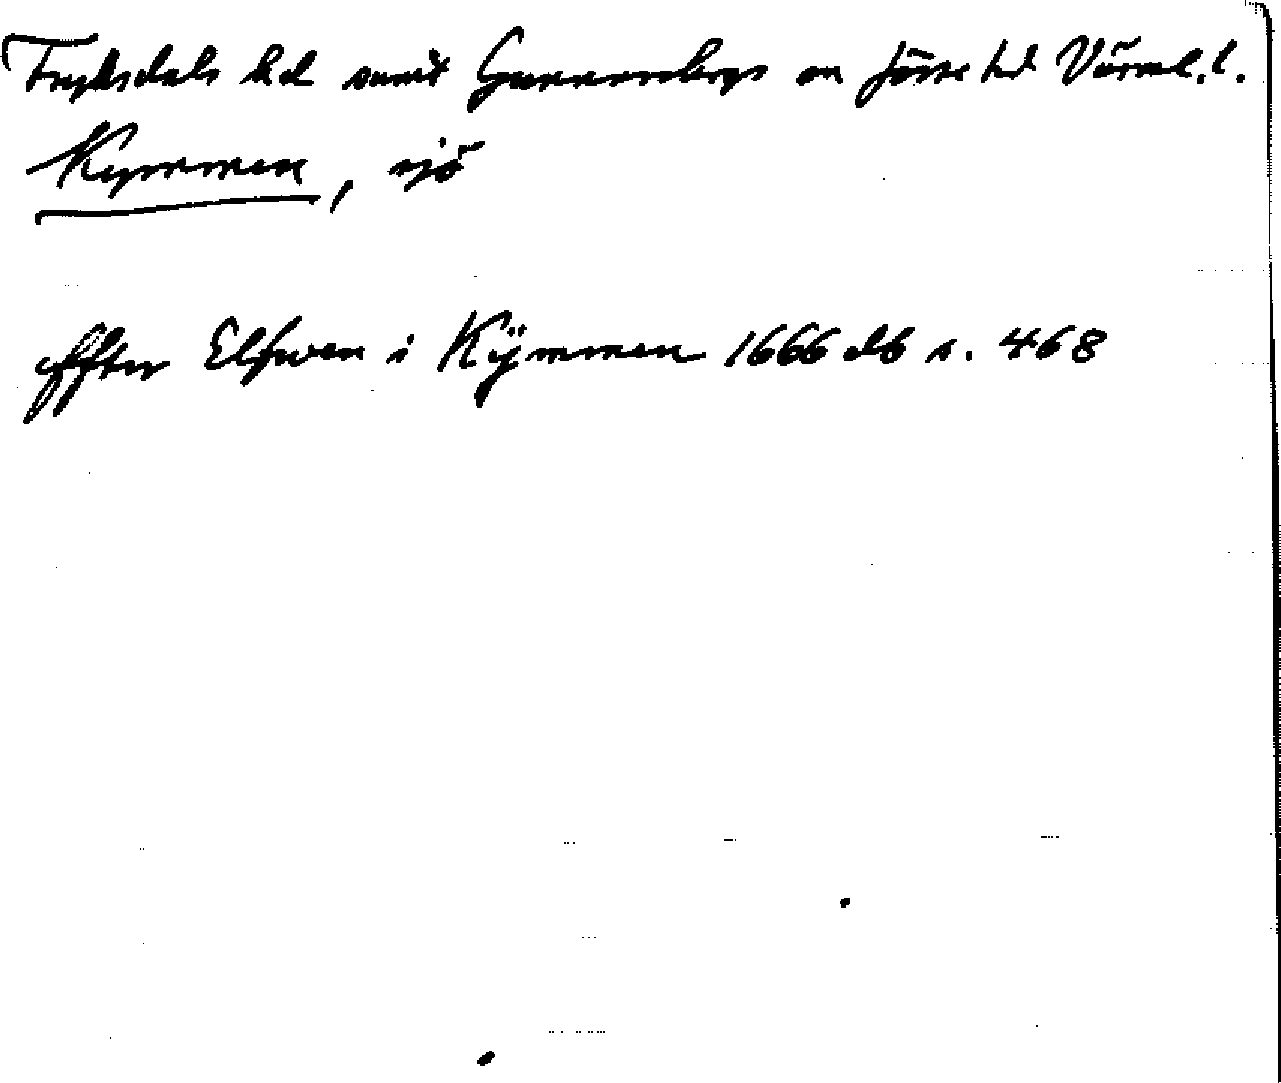 Fryksdals hd samt Gunnarskogs sn Jösse hd Värml. l.
Kymmen, sjö
effter Elfwen i Kÿmmen 1666 db s. 468